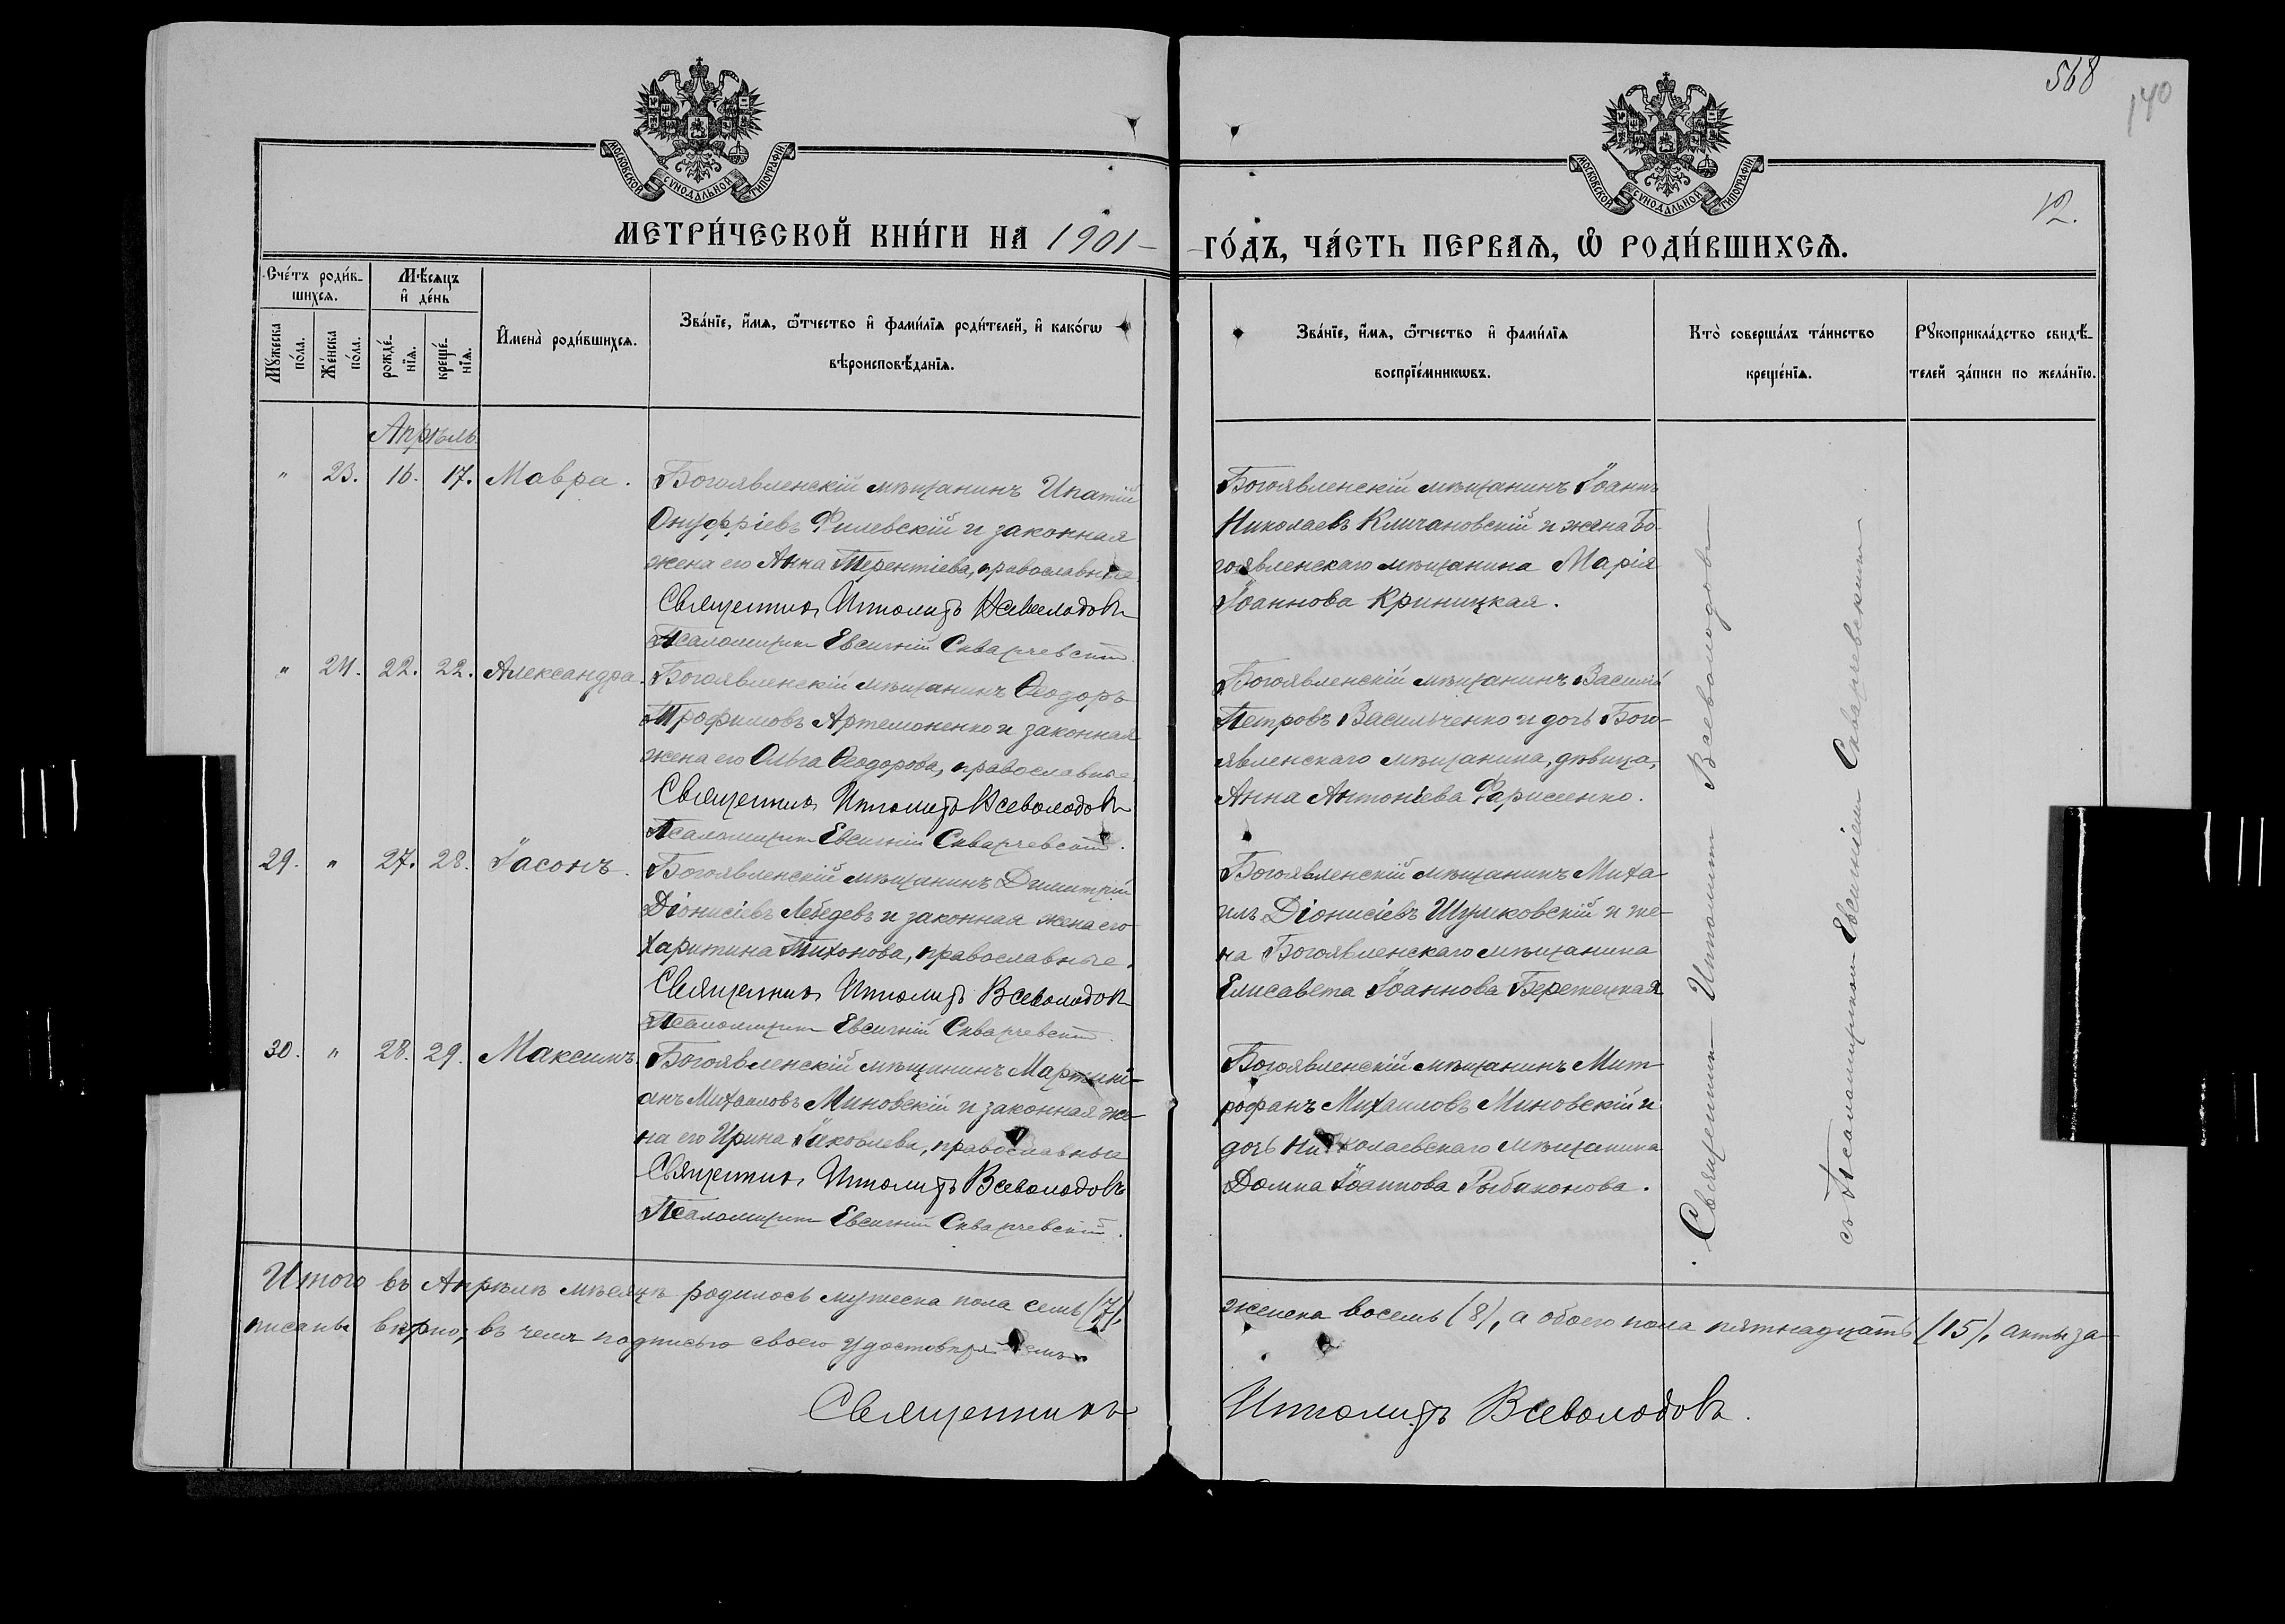 568
140
12.
МОСКОВСКОЙ СѴНОДАЛЬНОЙ ТИПОГРАФІИ
МОСКОВСКОЙ СѴНОДАЛЬНОЙ ТИПОГРАФІИ
МЕТРИ́ЧЕСКОЙ КНИ́ГИ НА 1901
ГО́ДЪ, ЧА́СТЬ ПЕРВАѦ, Ѽ РОДИ́ВШИХСѦ.
Сче́тъ роди́в-
шихсѧ.
Мꙋ́жеска
по́ла.
Же́нска
по́ла.
Мѣ́сѧцъ
и҆ де́нь
рожде́-
нїѧ.
креще́-
нїѧ.
И҆мена̀ роди́вшихсѧ.
Зва́нїе, и҆́мѧ, ѻ҆́тчество и҆ фами́лїѧ роди́телей, и҆ како́гѡ
вѣроисповѣ́данїѧ.
Зва́нїе, и҆́мѧ, ѻ҆́тчество и҆ фами́лїѧ
воспрїе́мникѡвъ.
Кто̀ соверша́лъ та́инство
креще́нїѧ.
Рꙋкоприкла́дство свидѣ́-
телей за́писи по жела́нїю.
Апрѣль.
" 23. 16. 17. Мавра.
Богоявленскій мѣщанинъ Ипатій
Онуфріевъ Филевскій и законная
жена его Анна Терентіева, православные
Священникъ Ипполитъ Всеволодовъ
Псаломщикъ Евсигній Скварчевскій.
Богоявленскій мѣщанинъ Іоаннъ
Николаевъ Кличановскій и жена Бо-
гоявленскаго мѣщанина Марія
Іоаннова Криницкая.
" 24. 22. 22. Александра.
Богоявленскій мѣщанинъ Ѳеодоръ
Трофимовъ Артемоненко и законная
жена его Ольга Ѳеодорова, православные.
Священникъ Ипполитъ Всеволодовъ
Псаломщикъ Евсигній Скварчевскій.
Богоявленскій мѣщанинъ Василій
Петровъ Васильченко и дочь Бого-
явленскаго мѣщанина, дѣвица,
Анна Антоніева
29. " 27. 28. Іасонъ.
Богоявленскій мѣщанинъ Димитрій
Діонисіевъ Лебедевъ и законная жена его
Харитина Тихонова, православные.
Священникъ Ипполитъ Всеволодовъ
Псаломщикъ Евсигній Скварчевскій.
Богоявленскій мѣщанинъ Миха-
илъ Діонисіевъ Шумковскій и же-
на Богоявленскаго мѣщанина
Елисавета Іоаннова Бережецкая
30. " 28. 29. Максимъ.
Богоявленскій мѣщанинъ Мартині-
анъ Михаиловъ Миновскій и законная же-
на его Ирина Іаковлева, православные
Священникъ Ипполитъ Всеволодовъ
Псаломщикъ Евсигній Скварчевскій.
Богоявленскій мѣщанинъ Мит-
рофанъ Михаиловъ Миновскій и
дочь Николаевскаго мѣщанина
Домна Іоаннова Рыбаконова.
Священникъ Ипполитъ Всеволодовъ
съ Псаломщикомъ Евсигніемъ Скварчевскимъ
Итого въ Апрѣлѣ мѣсяцѣ родилось мужеска пола семь (7),
женска восемь (8), а обоего пола пятнадцать (15), акты за-
писаны вѣрно, въ чемъ подписью своею удостовѣряемъ.
Священникъ Ипполитъ Всеволодовъ.